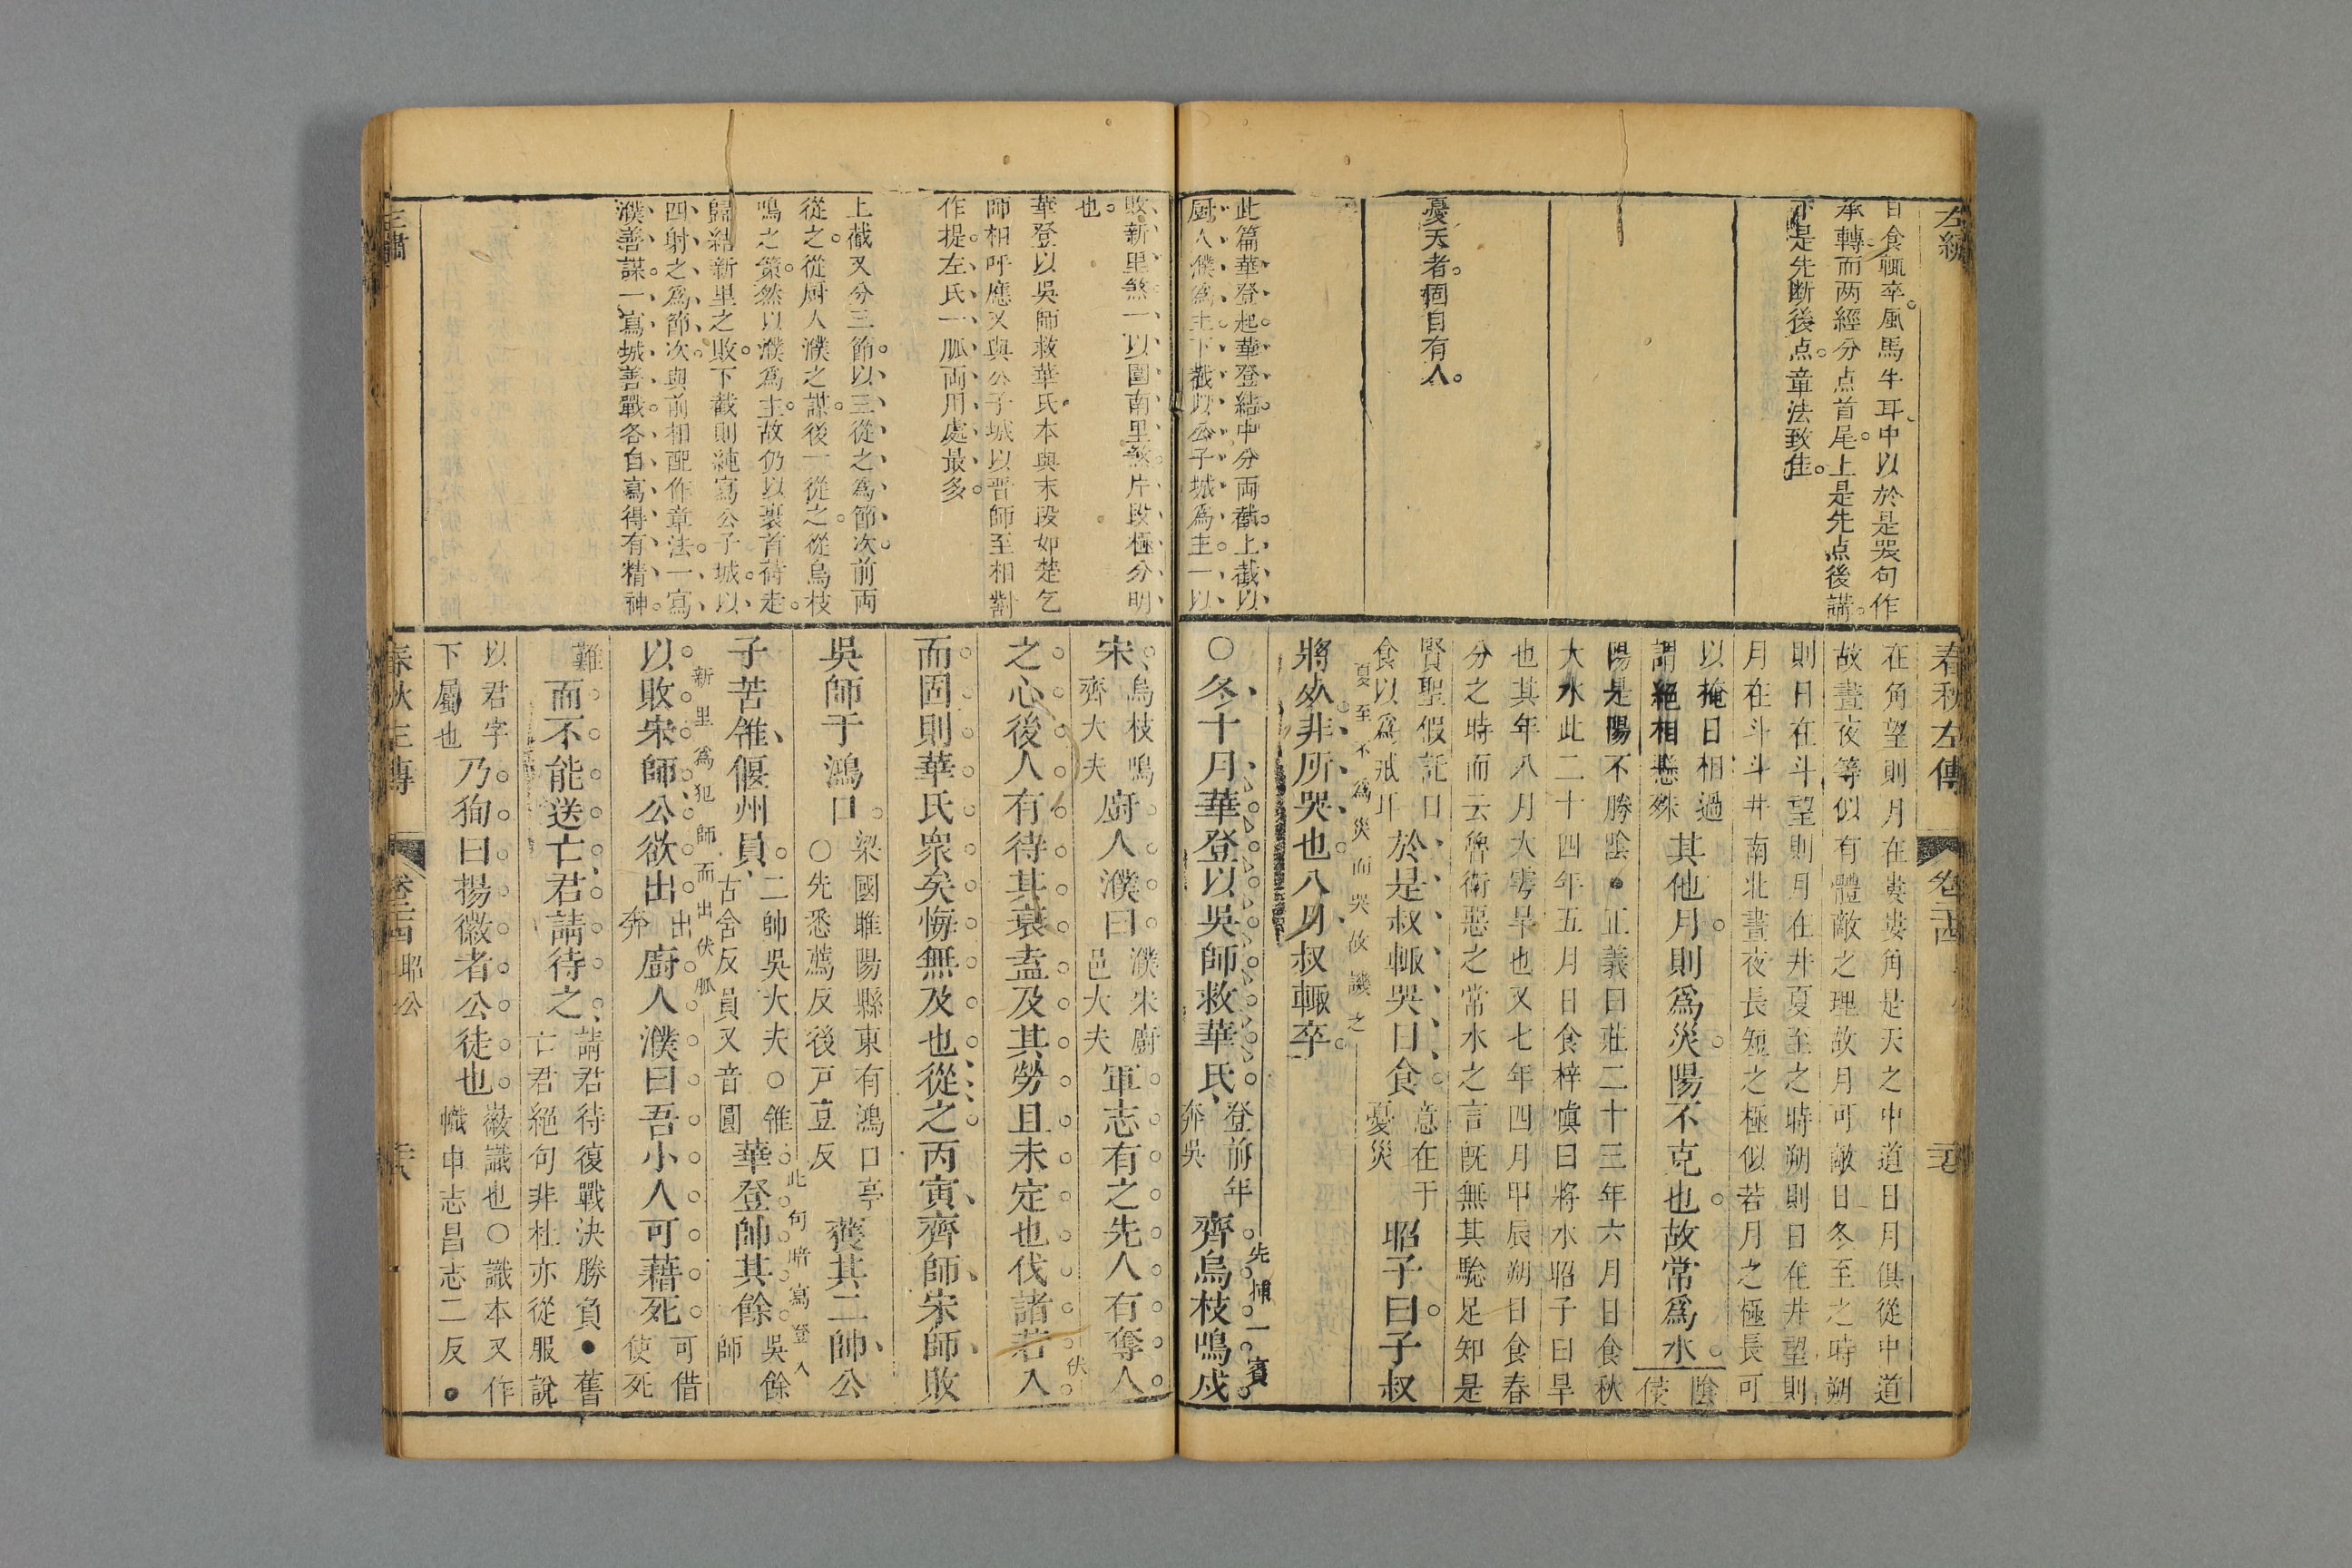 左繡
日食輒卒風馬牛耳中以於是哭句作
承轉而两經分点首尾上是先点後講
下是先断後点章法致佳
憂天者個自有人
此篇華登起華登結中分両截上截以
厨人濮爲主下截以公子城爲主一以
春秋左傳
在角望則月在婁婁角是天之中道日月俱從中道
故晝夜等似有體敵之理故月可敵日冬至之時朔
則日在斗望則月在井夏至之時朔則日在井望則
月在斗斗井南北晝夜長短之極似若月之極長可
以掩日相過
謂絕相懸殊
其他月則爲災陽不克也故常爲水
陰
侵
陽是陽不勝陰●正義曰莊二十三年六月日食秋
大水此二十四年五月日食梓慎曰將水昭子曰旱
也其年八月大雩旱也又七年四月甲辰朔日食春
分之時而云魯衛惡之常水之言旣無其驗足知是
賢聖假託日
食以爲戒耳
於是叔輒哭日食
意在于
憂災
昭子曰子叔
夏至不爲災而哭故譏之
將死非所哭也八月叔輒卒
○冬十月華登以吳師救華氏
登前年
奔吳
齊烏枝鳴戍
先揷一賓
敗新里煞一以圍南里煞片段極分明
也
華登以吳師救華氏本與末段如楚乞
師相呼應又與公子城以晋師至相對
作提左氏一脈両用處最多
上截又分三節以三從之爲節次前両
從之從厨人濮之謀後一從之從烏枝
鳴之策然以濮爲主故仍以裹首荷走
歸結新里之敗下截則純寫公子城以
四射之爲節次與前相配作章法一寫
濮善謀一寫城善戰各自寫得有精神
宋
烏枝鳴
齊大夫
厨人濮曰
濮宋廚
邑大夫
軍志有之先人有奪人
之心後人有待其衰盍及其勞且未定也伐諸若入
伏
而固則華氏衆矣悔無及也從之丙寅齊師宋師敗
吳師于鴻口
梁國睢陽縣東有鴻口亭
○先悉薦反後戸豆反
獲其二帥公
子苦雂偃州員
二帥吳大夫○雂
古舍反員又音圓
華登帥其餘
吳餘
師
此句暗寫登入
新里爲犯師而出伏脈
以敗宋師公欲出
出
奔
廚人濮曰吾小人可藉死
可借
使死
難
而不能送亡君請待之
請君待復戰決勝負●舊
亡君絕句非杜亦從服說
以君字
下屬也
乃狥曰揚徽者公徒也
徽識也○識本又作
幟申志昌志二反●
春秋左傳
昭公